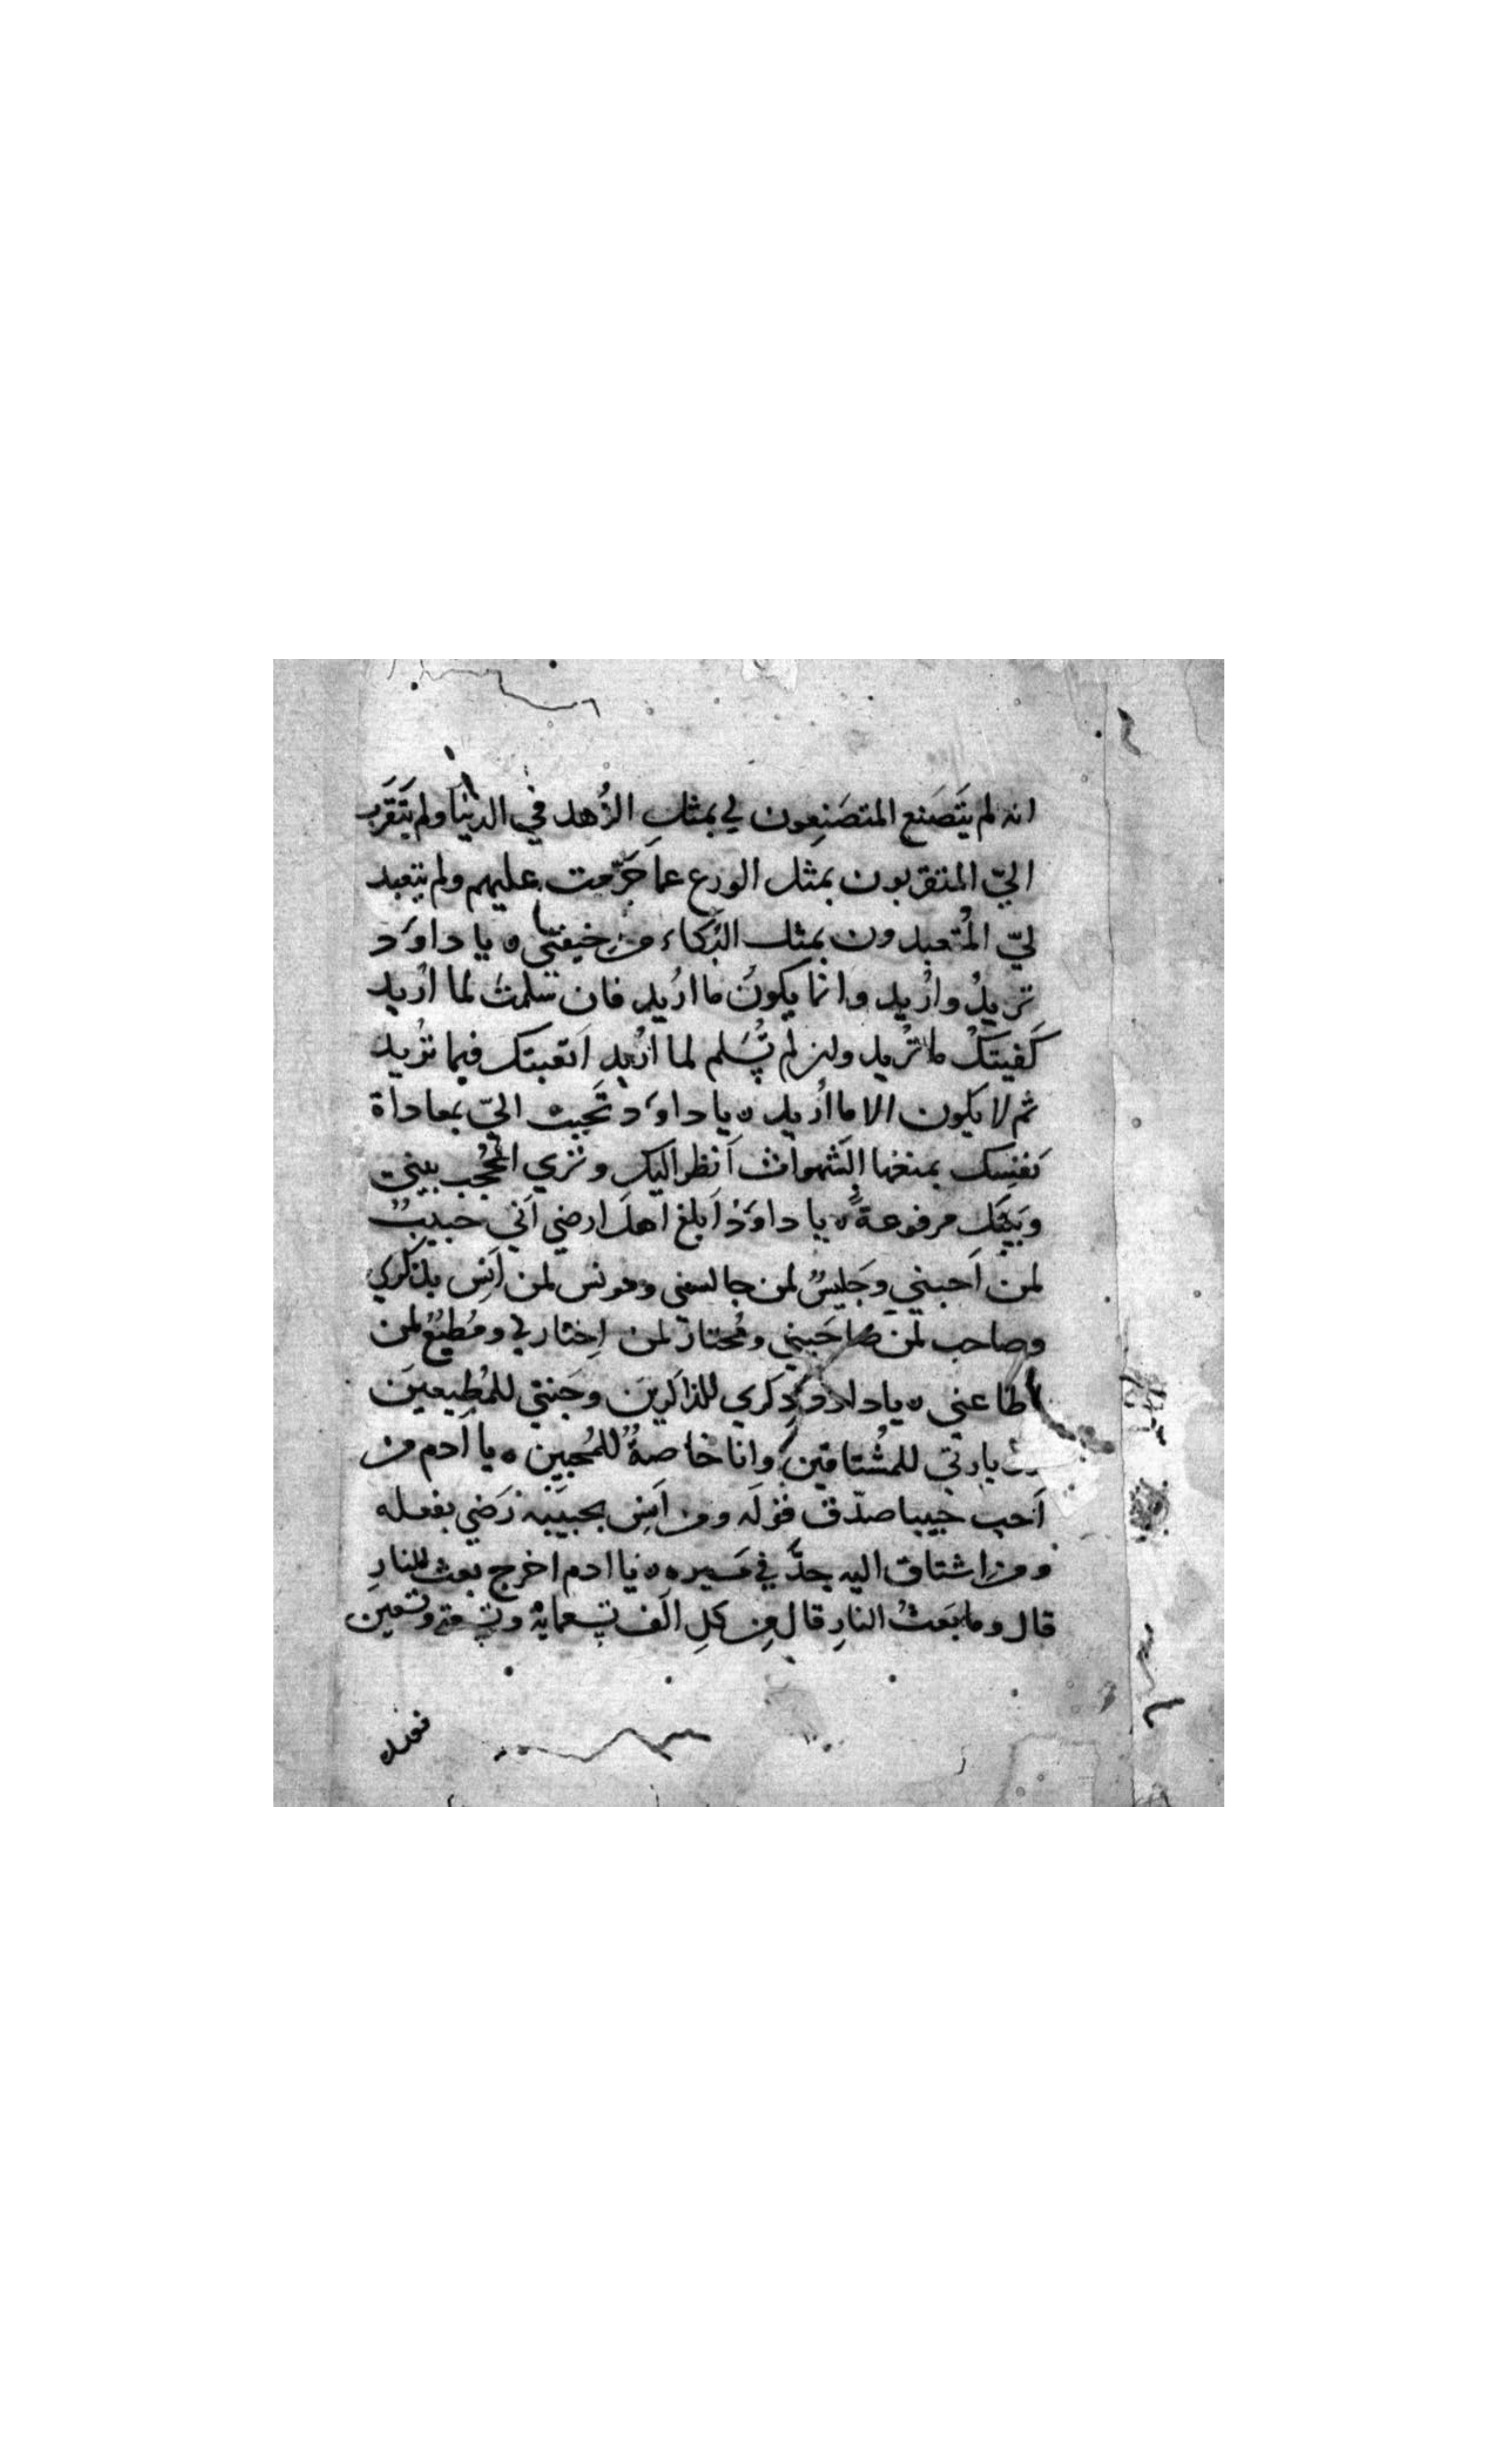 انه لم يَتَصَنع المتصَنِعون لي بمثلِ الزُهد في الدنيا ولم يَتَقَرب
اليّ المتقربون بمثل الورع عما حَرّمت عليهم ولم يتعبد
ليّ المُتعبدون بمثل البُكاء من خيفتي ه يا داوُد
تريدُ واُريد وانما يكونُ ما اُريد فان سَلمتَ لما اُريد
كَفيتكَ ما تُريد وان لم تُسَلم لما اُريد اَتعبتك فيما تُريد
ثم لا يكون الا ما اُريد ه يا داوُد تَحبب اليّ بمعاداة
نفسِك بمنعها الشَهوات اَنظر اليك وترى الحُجب بيني
وبَينك مرفوعةً ه يا داوُد اَبلغ اهلَ ارضي اَني حبيبٌ
لمن اَحبني وجَليسٌ لمن جالسني ومونس لمن اَنِس بذكري
وصاحب لمن صاحَبني ومُختار لمن اِختارني ومُطيعٌ لمن
اطاعني ه يا داود ذِكري للذاكرين وجَنتي للمُطيعينَ
وزيارتي للمُشتاقين وانا خاصةٌ للمُحبين ه يا اَدم من
اَحب حبيبا صدّق قولَه ومن اَنِس بحبيبَه رَضي بفعله
ومن اشتاق اليه جدَّ في مَسيره ه يا ادم اخرج بعث للنارِ
قال وما بَعثُ النارِ قال مِن كلِ الَف تِسعمايةٌ وتِسعة وتسعين